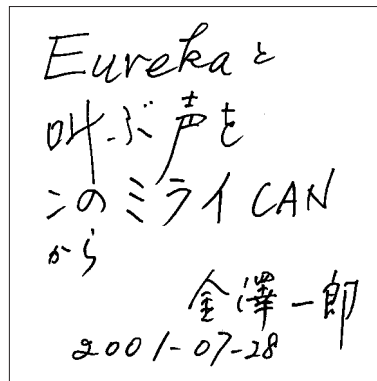 Eurekaと
叫ぶ声を
このミライCAN
から
金澤一郎
2001-07-28